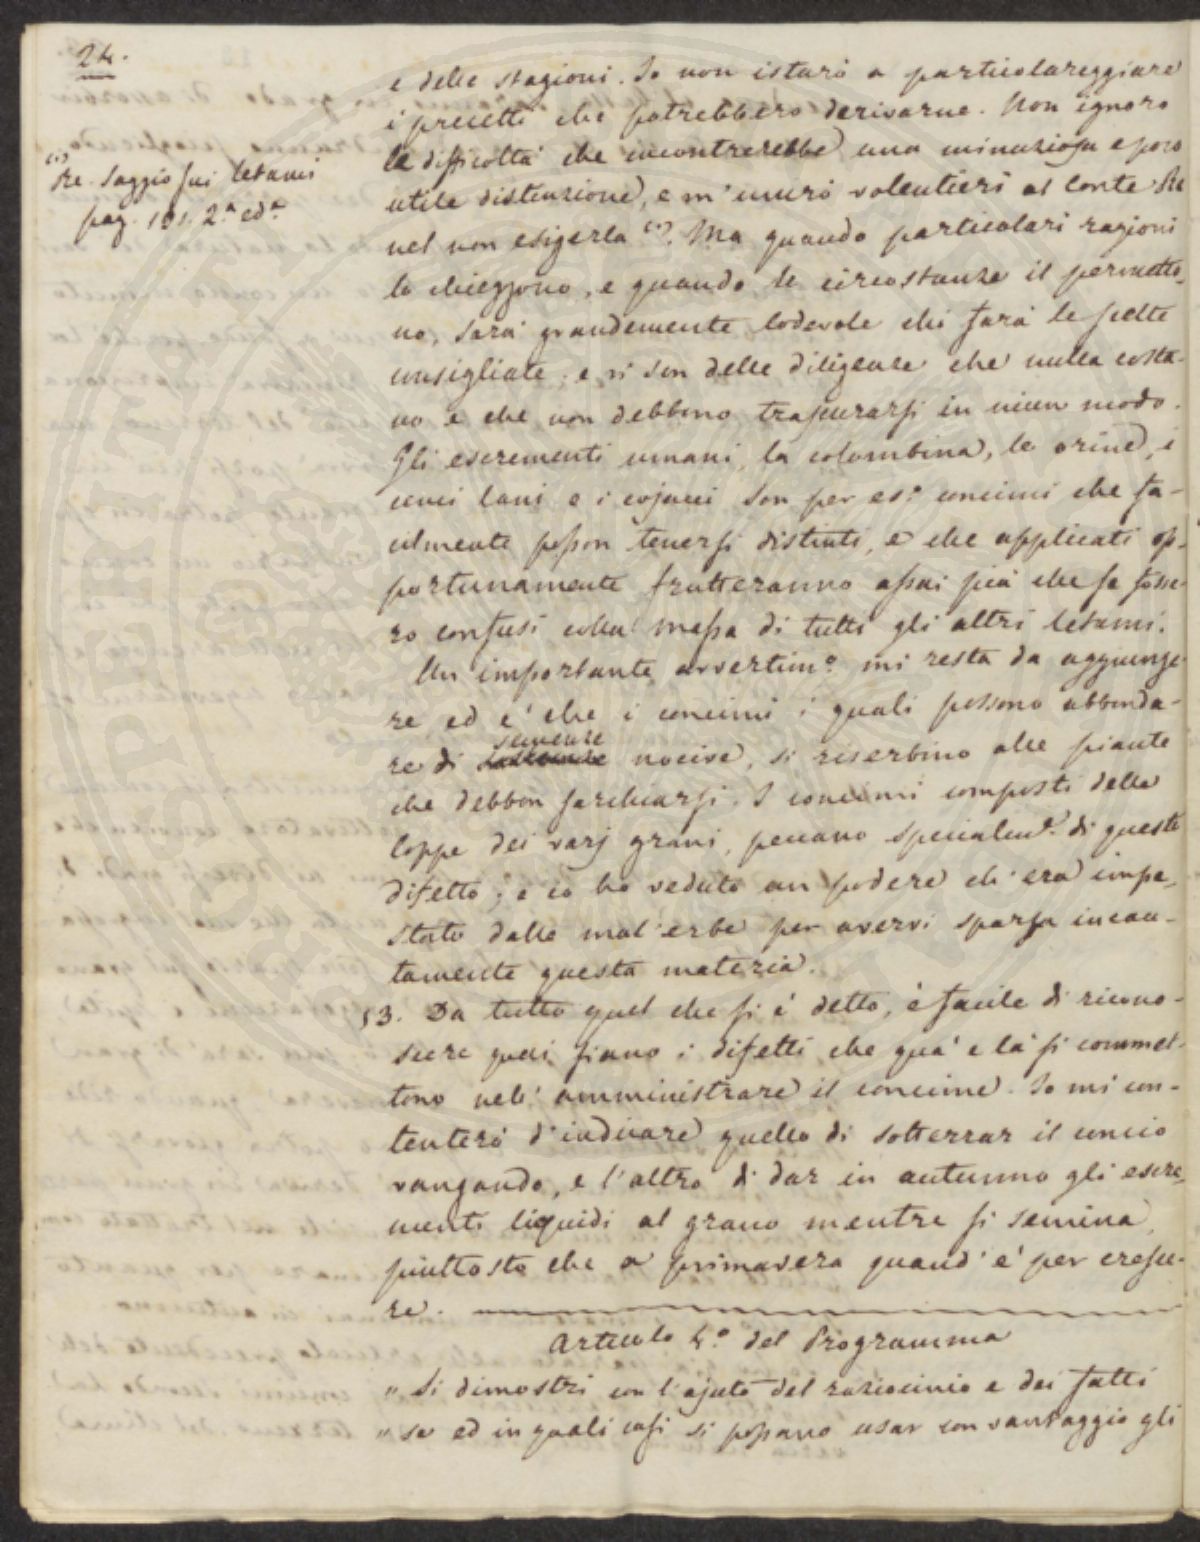 24.
(1)
Re. Saggio sui letami
pag. 101. 2.ª ed.e
e delle stagioni. Io non istarò a particolareggiare
i precetti che potrebbero derivarne. Non ignoro
le difficoltà che incontrerebbe una minuziosa e poco
utile distinzione, e m'unirò volentieri al Conte Re
nel non esigerla (1). Ma quando particolari ragioni
lo chieggono, e quando le circostanze il permetto-
no, sarà grandemente lodevole chi farà le scelte
consigliate; e vi son delle diligenze che nulla costa-
no e che non debbono trascurarsi in niun modo.
Gli escrementi umani, la colombina, le orine, i
cenci lani e i cojacci son per es.o concimi che fa-
cilmente posson tenersi distinti, e che applicati op-
portunamente frutteranno assai più che se fosse-
ro confusi colla massa di tutti gli altri letami.
Un importante avvertim.o mi resta da aggiunge-
re ed e' che i concimi i quali possono abbonda-
semenze
re di nocive, si riserbino alle piante
che debbon sarchiarsi. I concimi composti della
loppe dei varj grani, peccano specialm.e di questo
difetto; e io ho veduto un podere ch'era impe-
stato dalle mal'erbe per avervi sparsa incau-
tamente questa materia.
53. Da tutto quel che si è detto, è facile di ricono-
scere quai siano i difetti che quà e là si commet-
tono nell'amministrare il concime. Io mi con-
tenterò d'indicare quello di sotterrar il concio
vangando, e l'altro di dar in autunno gli escre-
menti liquidi al grano mentre si semina,
piuttosto che a primavera quand'è per cresce-
re.
Articolo 4.o del Programma
" Si dimostri con l'ajuto del raziocinio e dei fatti
" se ed in quali casi si possano usar con vantaggio gli